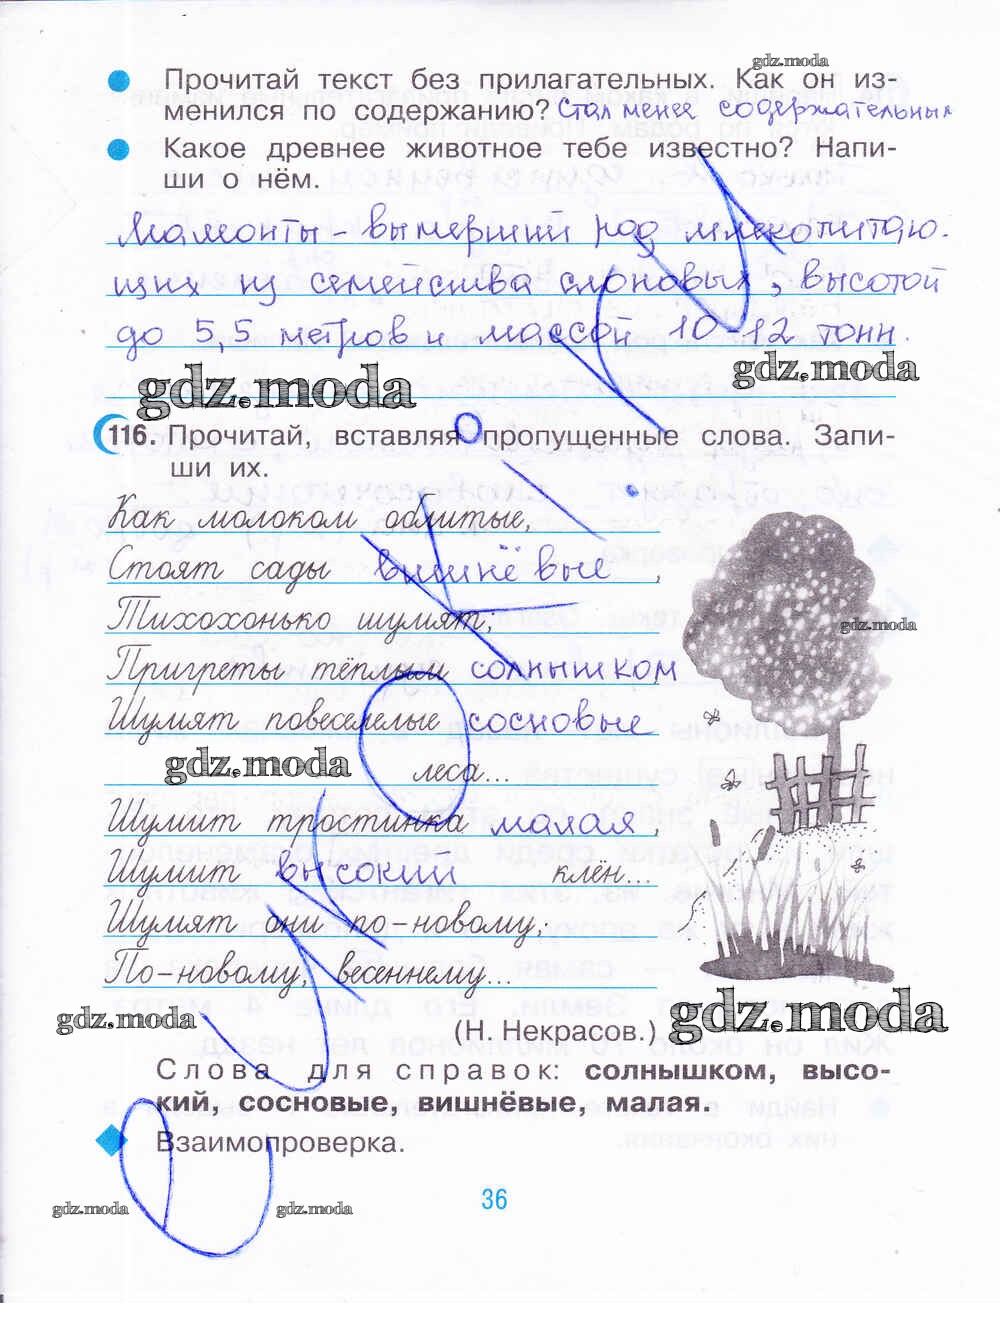 gdz.moda
Прочитай текст без прилагательных. Как он из-
менился по содержанию? Стал менее содержательным
Какое древнее животное тебе известно? Напи-
ши о нём.
Мамонты - вымерший род млекопитаю-
щих из семейства слоновых, высотой
до 5,5 метров и массой 10-12 тонн.
gdz.moda
gdz.moda
116. Прочитай, вставляя пропущенные слова. Запи-
ши их.
Как молоком облитые,
Стоят сады вишнёвые,
Тихохонько шумят;
gdz.moda
Пригреты тёплым солнышком
Шумят повеселелые сосновые
gdz.moda
леса...
Шумит тростинка малая,
Шумит высокий клён...
Шумят они по-новому,
По-новому, весеннему...
gdz.moda
(Н. Некрасов.)
gdz.moda
Слова для справок: солнышком, высо-
кий, сосновые, вишнёвые, малая.
Взаимопроверка.
gdz.moda
36
gdz.moda